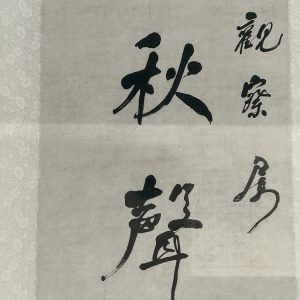 觀察屬
秋聲